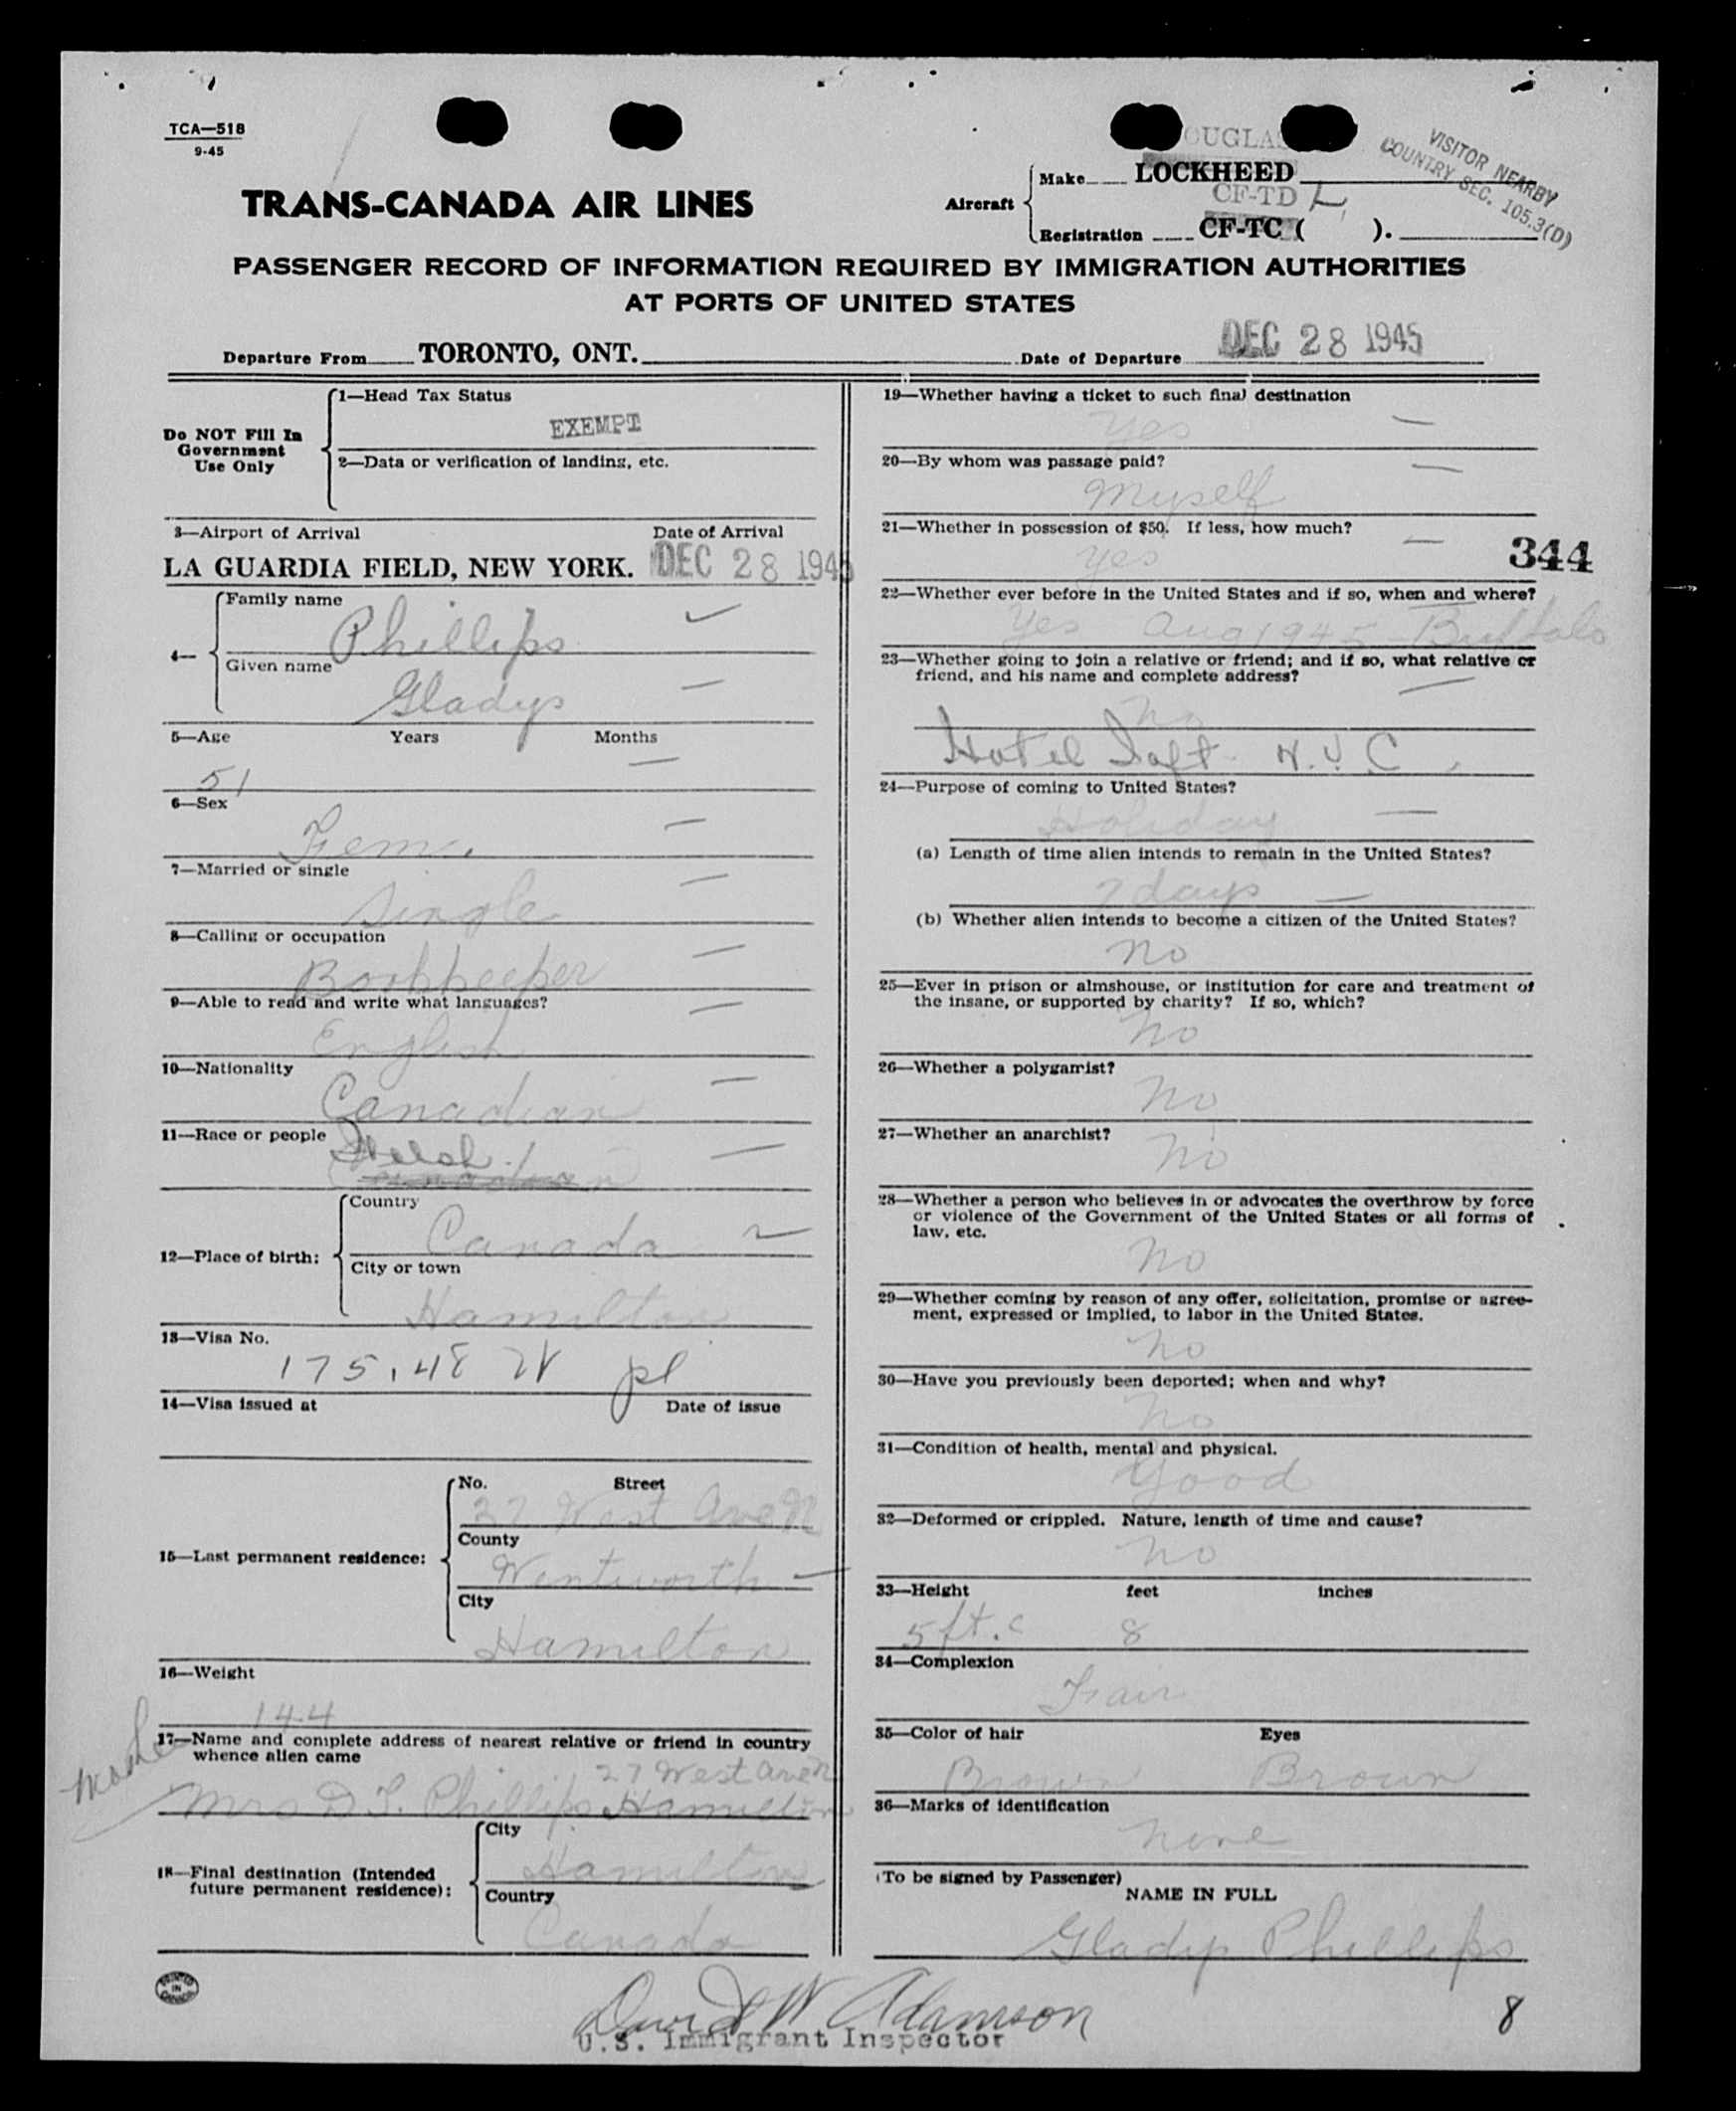 TCA—518
9-45
DOUGLAS
VISITOR NEARBY
COUNTRY SEC. 105.3(D)
TRANS-CANADA AIR LINES
Aircraft
Make LOCKHEED
CF-TD L
Registration CF-TC ( ).
PASSENGER RECORD OF INFORMATION REQUIRED BY IMMIGRATION AUTHORITIES
AT PORTS OF UNITED STATES
Departure From TORONTO, ONT. Date of Departure DEC 28 1945
Do NOT Fill In
Government
Use Only
1—Head Tax Status
EXEMPT
2—Data or verification of landing, etc.
3—Airport of Arrival Date of Arrival
LA GUARDIA FIELD, NEW YORK. DEC 28 1945
4—
Family name
Phillips
Given name
Gladys
5—Age Years Months
51
6—Sex
Fem.
7—Married or single
Single
8—Calling or occupation
Bookkeeper
9—Able to read and write what languages?
English
10—Nationality
Canadian
11—Race or people
Welsh
Canadian
12—Place of birth:
Country
Canada
City or town
Hamilton
13—Visa No.
175.48
14—Visa issued at Date of issue
15—Last permanent residence:
No. Street
27 West Ave N
County
Wentworth
City
Hamilton
16—Weight
144
17—Name and complete address of nearest relative or friend in country
whence alien came
Mother
27 West Ave N
Mrs D. T. Phillips Hamilton
18—Final destination (Intended
future permanent residence):
City
Hamilton
Country
Canada
19—Whether having a ticket to such final destination
Yes
20—By whom was passage paid?
Myself
21—Whether in possession of $50. If less, how much?
Yes
344
22—Whether ever before in the United States and if so, when and where?
Yes Aug 1945 Buffalo
23—Whether going to join a relative or friend; and if so, what relative or
friend, and his name and complete address?
No
Hotel Taft N.Y.C.
24—Purpose of coming to United States?
Holiday
(a) Length of time alien intends to remain in the United States?
7 days
(b) Whether alien intends to become a citizen of the United States?
No
25—Ever in prison or almshouse, or institution for care and treatment of
the insane, or supported by charity? If so, which?
No
26—Whether a polygamist?
No
27—Whether an anarchist?
No
28—Whether a person who believes in or advocates the overthrow by force
or violence of the Government of the United States or all forms of
law, etc.
No
29—Whether coming by reason of any offer, solicitation, promise or agree-
ment, expressed or implied, to labor in the United States.
No
30—Have you previously been deported; when and why?
No
31—Condition of health, mental and physical.
Good
32—Deformed or crippled. Nature, length of time and cause?
No
33—Height feet inches
5 ft. 8
34—Complexion
Fair
35—Color of hair Eyes
Brown Brown
36—Marks of identification
None
(To be signed by Passenger)
NAME IN FULL
Gladys Phillips
PRINTED
IN
CANADA
David W Adamson
U.S. Immigrant Inspector
8